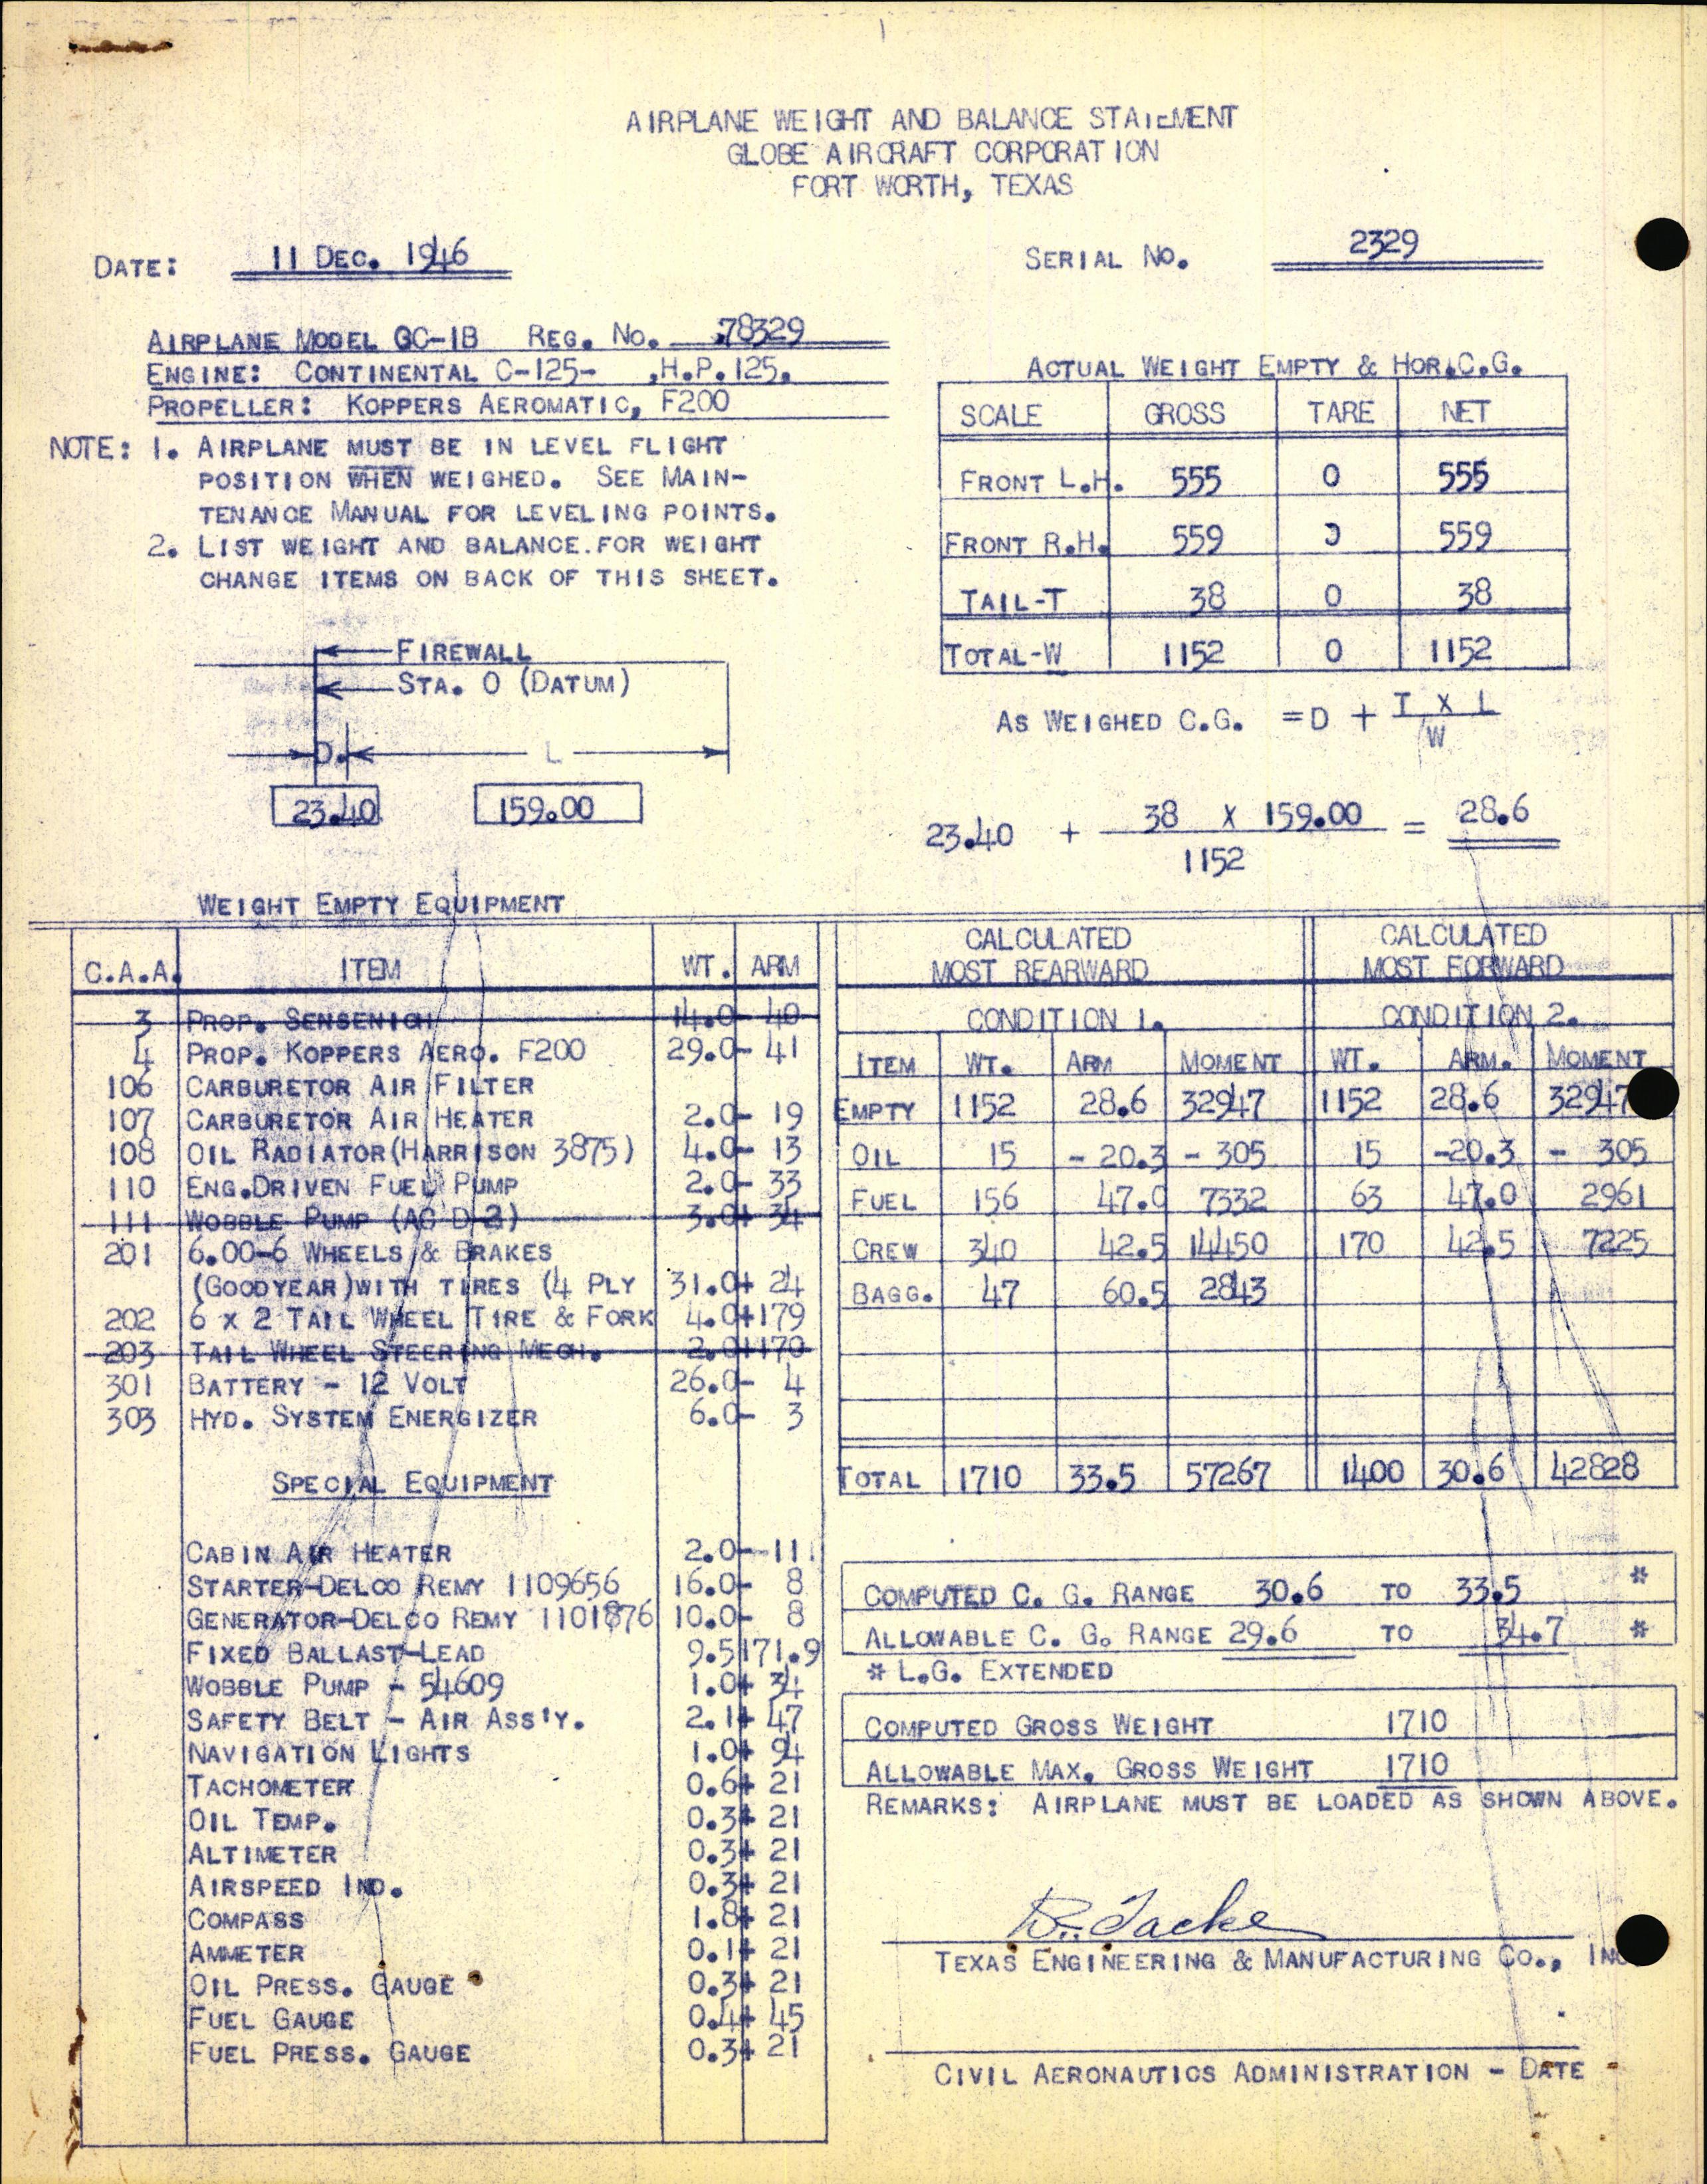 AIRPLANE WEIGHT AND BALANCE STATEMENT
GLOBE AIRCRAFT CORPORATION
FORT WORTH, TEXAS
DATE: 11 DEC. 1946
SERIAL NO. 2329
AIRPLANE MODEL GC-1B REG. NO. 78329
ENGINE: CONTINENTAL C-125- ,H.P. 125.
PROPELLER: KOPPERS AEROMATIC, F200
NOTE: 1. AIRPLANE MUST BE IN LEVEL FLIGHT
POSITION WHEN WEIGHED. SEE MAIN-
TENANCE MANUAL FOR LEVELING POINTS.
2. LIST WEIGHT AND BALANCE.FOR WEIGHT
CHANGE ITEMS ON BACK OF THIS SHEET.
ACTUAL WEIGHT EMPTY & HOR.C.G.
SCALE GROSS TARE NET
FRONT L.H. 555 0 555
FRONT R.H. 559 0 559
TAIL-T 38 0 38
TOTAL-W 1152 0 1152
FIREWALL
STA. 0 (DATUM)
D. L
23.40 159.00
AS WEIGHED C.G. = D + T X L
W
23.40 + 38 X 159.00 = 28.6
1152
WEIGHT EMPTY EQUIPMENT
C.A.A. ITEM WT. ARM
3 PROP. SENSENICH 14.0- 40
4 PROP. KOPPERS AERO. F200 29.0- 41
106 CARBURETOR AIR FILTER
107 CARBURETOR AIR HEATER 2.0- 19
108 OIL RADIATOR(HARRISON 3875) 4.0- 13
110 ENG.DRIVEN FUEL PUMP 2.0- 33
111 WOBBLE PUMP (AC D-2) 3.0+ 34
201 6.00-6 WHEELS & BRAKES
(GOODYEAR)WITH TIRES (4 PLY 31.0+ 24
202 6 X 2 TAIL WHEEL TIRE & FORK 4.0+179
203 TAIL WHEEL STEERING MECH. 2.0+170
301 BATTERY - 12 VOLT 26.0- 4
303 HYD. SYSTEM ENERGIZER 6.0- 3
SPECIAL EQUIPMENT
CABIN AIR HEATER 2.0--11
STARTER-DELCO REMY 1109656 16.0- 8
GENERATOR-DELCO REMY 1101876 10.0- 8
FIXED BALLAST-LEAD 9.5 171.9
WOBBLE PUMP - 54609 1.0+ 34
SAFETY BELT - AIR ASS'Y. 2.1+ 47
NAVIGATION LIGHTS 1.0+ 94
TACHOMETER 0.6+ 21
OIL TEMP. 0.3+ 21
ALTIMETER 0.3+ 21
AIRSPEED IND. 0.3+ 21
COMPASS 1.8+ 21
AMMETER 0.1+ 21
OIL PRESS. GAUGE 0.3+ 21
FUEL GAUGE 0.4+ 45
FUEL PRESS. GAUGE 0.3+ 21
CALCULATED CALCULATED
MOST REARWARD MOST FORWARD
CONDITION 1. CONDITION 2.
ITEM WT. ARM MOMENT WT. ARM. MOMENT
EMPTY 1152 28.6 32947 1152 28.6 32947
OIL 15 - 20.3 - 305 15 -20.3 - 305
FUEL 156 47.0 7332 63 47.0 2961
CREW 340 42.5 14450 170 42.5 7225
BAGG. 47 60.5 2843
TOTAL 1710 33.5 57267 1400 30.6 42828
COMPUTED C. G. RANGE 30.6 TO 33.5 *
ALLOWABLE C. G. RANGE 29.6 TO 34.7 *
* L.G. EXTENDED
COMPUTED GROSS WEIGHT 1710
ALLOWABLE MAX. GROSS WEIGHT 1710
REMARKS: AIRPLANE MUST BE LOADED AS SHOWN ABOVE.
TEXAS ENGINEERING & MANUFACTURING CO., INC
CIVIL AERONAUTICS ADMINISTRATION - DATE -